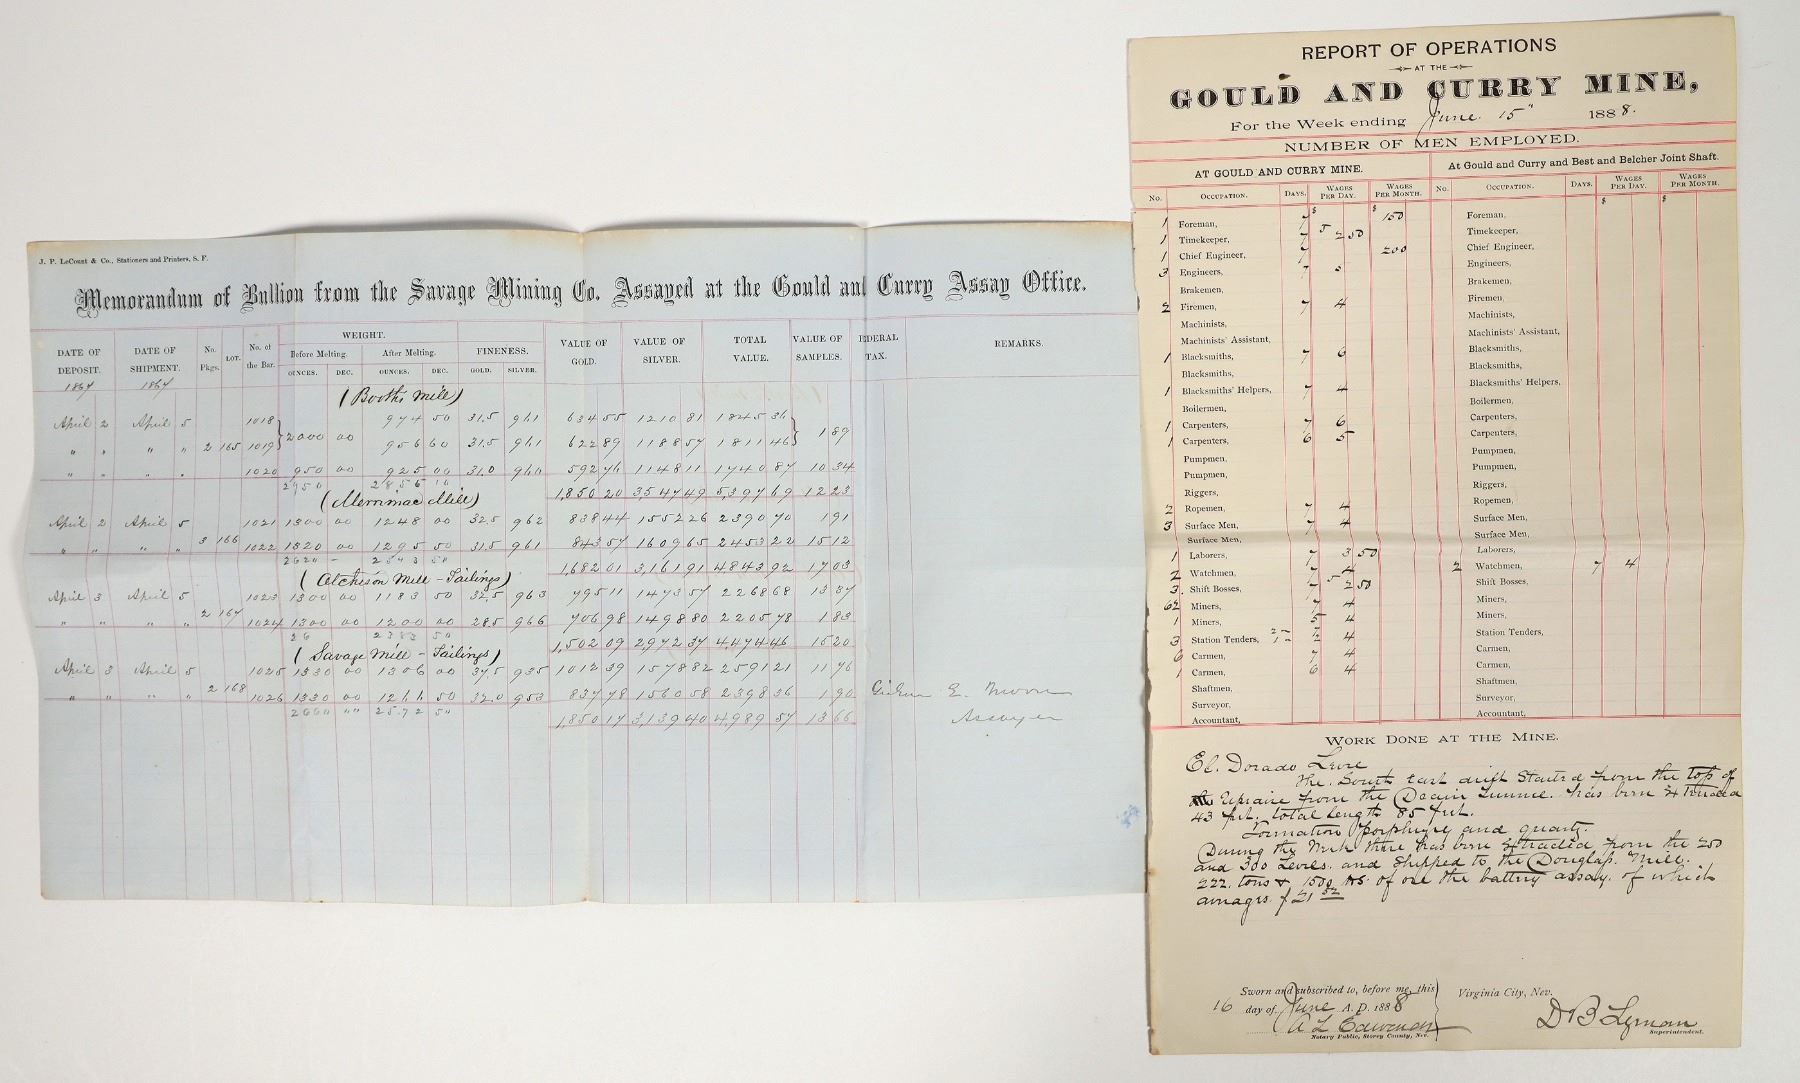 J. P. LeCount & Co., Stationers and Printers, S. F.
Memorandum of Bullion from the Savage Mining Co. Assayed at the Gould and Curry Assay Office.
DATE OF DEPOSIT. DATE OF SHIPMENT. No. Pkgs. LOT. No. of the Bar. WEIGHT. FINENESS. VALUE OF GOLD. VALUE OF SILVER. TOTAL VALUE. VALUE OF SAMPLES. FEDERAL TAX. REMARKS.
Before Melting. After Melting.
OUNCES. DEC. OUNCES. DEC. GOLD. SILVER.
1864 1864
(Booth's Mill)
April 2 April 5 1018 974 50 31.5 961 634 55 1210 81 1845 36
" " " " 2 165 1019 2000 00 956 60 31.5 961 622 89 1188 57 1811 46 1 89
" " " " 1020 950 00 925 00 31.0 960 592 76 1148 11 1740 87 10 34
2950 2856 10 1,850 20 3547 49 5,397 69 12 23
(Merrimac Mill)
April 2 April 5 1021 1300 00 1248 00 32.5 962 838 44 1552 26 2390 70 1 91
" " " " 3 166 1022 1320 00 1295 50 31.5 961 843 57 1609 65 2453 22 15 12
2620 - 2543 50 1,682 01 3,161 91 4,843 92 17 03
(Atcheson Mill - Tailings)
April 3 April 5 1023 1300 00 1183 50 32.5 963 795 11 1473 57 2268 68 13 37
" " " " 2 167 1024 1300 00 1200 00 28.5 966 706 98 1498 80 2205 78 1 83
26 2383 50 1,502 09 2972 37 4,474 46 15 20
(Savage Mill - Tailings)
April 3 April 5 1025 1330 00 1306 00 37.5 935 1012 39 1578 82 2591 21 11 76
" " " " 2 168 1026 1330 00 1266 50 32.0 953 837 78 1560 58 2398 36 1 90 E. Moore
2660 "" 2572 50 1,850 17 3,139 40 4,989 57 13 66 Assayer
REPORT OF OPERATIONS
AT THE
GOULD AND CURRY MINE,
For the Week ending June 15" 1888.
NUMBER OF MEN EMPLOYED.
AT GOULD AND CURRY MINE. At Gould and Curry and Best and Belcher Joint Shaft.
No. OCCUPATION. DAYS. WAGES PER DAY. WAGES PER MONTH. No. OCCUPATION. DAYS. WAGES PER DAY. WAGES PER MONTH.
$ $ $ $
1 Foreman, 7 150 Foreman,
1 Timekeeper, 7 5 2 50 Timekeeper,
1 Chief Engineer, 7 200 Chief Engineer,
3 Engineers, 7 Engineers,
Brakemen, Brakemen,
2 Firemen, 7 4 Firemen,
Machinists, Machinists,
Machinists' Assistant, Machinists' Assistant,
1 Blacksmiths, 7 6 Blacksmiths,
Blacksmiths, Blacksmiths,
1 Blacksmiths' Helpers, 7 4 Blacksmiths' Helpers,
Boilermen, Boilermen,
1 Carpenters, 7 6 Carpenters,
1 Carpenters, 6 5 Carpenters,
Pumpmen, Pumpmen,
Pumpmen, Pumpmen,
Riggers, Riggers,
2 Ropemen, 7 4 Ropemen,
3 Surface Men, 7 4 Surface Men,
Surface Men, Surface Men,
1 Laborers, 7 3 50 Laborers,
2 Watchmen, 7 4 2 Watchmen, 7 4
3. Shift Bosses, 7 5 2 50 Shift Bosses,
62 Miners, 7 4 Miners,
1 Miners, 5 4 Miners,
3 Station Tenders, 2- 1- 7 4 Station Tenders,
6 Carmen, 7 4 Carmen,
1 Carmen, 6 4 Carmen,
Shaftmen, Shaftmen,
Surveyor, Surveyor,
Accountant, Accountant,
WORK DONE AT THE MINE.
El. Dorado Level
The South East drift Started from the top of
the Upraise from the Drain Tunnel. has been Extended
43 feet. total length 85 feet.
Formation porphyry and quartz.
During the Week there has been Extracted from the 200
and 300 Levels. and Shipped to the Douglass. Mill.
222. tons & 1500 lbs. of ore the battery assay. of which
averages. $21 52
Sworn and subscribed to, before me, this
16 day of June A. D. 1888
A L
Notary Public, Storey County, Nev.
Virginia City, Nev.
D B Lyman
Superintendent.